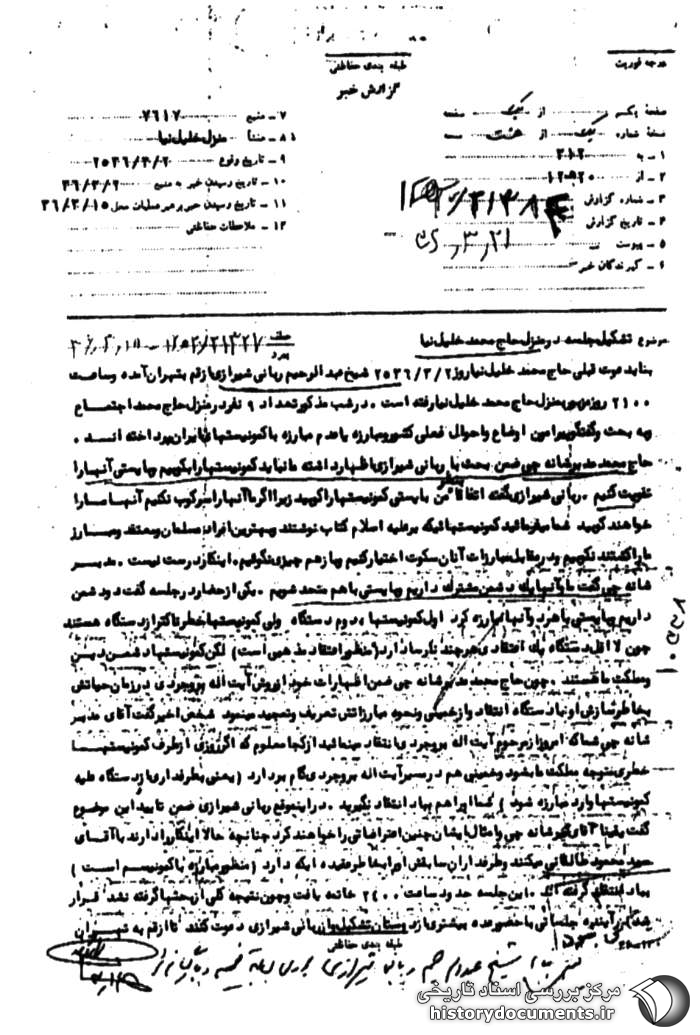 درجه فوریت
طبقه بندی حفاظتی
گزارش خبر
صفحه یکسر از یک صفحه
نسخه شماره یک از هشت نسخه
۱ - به ۳۱۲
۲ - از
۳ - شماره گزارش
۴ - تاریخ گزارش
۵ - پیوست
۶ - گیرندگان خبر
۷ - منبع ۷۶۱۷
۸ - منشأ منزل خلیل نیا
۹ - تاریخ وقوع ۲۵۳۶/۳/۲
۱۰ - تاریخ رسیدن خبر به منبع ۳۶/۳/۲
۱۱ - تاریخ رسیدن خبر به رهبر عملیات محل ۳۶/۳/۱۵
۱۲ - ملاحظات حفاظتی
موضوع تشکیل جلسه در منزل حاج محمد خلیل نیا
بنا بدعوت قبلی حاج محمد خلیل نیا روز ۲۵۳۶/۳/۲ شیخ عبدالرحیم ربانی شیرازی از قم بتهران آمده و ساعت
۲۱۰۰ روز مزبور بمنزل حاج محمد خلیل نیا رفته است . در شب مذکور تعداد ۹ نفر در منزل حاج محمد اجتماع
و به بحث و گفتگو پیرامون اوضاع و احوال فعلی کشور و مبارزه یا عدم مبارزه با کمونیستها در ایران پرداخته اند .
حاج محمد مدیر شانه چی ضمن بحث با ربانی شیرازی اظهار داشته ما نباید کمونیستها را بکوبیم و بایستی آنها را
تقویت کنیم . ربانی شیرازی گفته اتفاقاً بنظر من بایستی کمونیستها را کوبید زیرا اگر ما آنها را سرکوب نکنیم آنها ما را
خواهند کوبید شما میفرمائید کمونیستهائیکه بر علیه اسلام کتاب نوشتند و بهترین افراد مسلمان و معتقد و مبارز
ما را کشتند نکوبیم و در مقابل مبارزات آنان سکوت اختیار کنیم و باز هم چیزی نگوئیم . اینکار درست نیست . مدیر
شانه چی گفت ما و آنها یک دشمن مشترک داریم و بایستی با هم متحد شویم . یکی از حضار در جلسه گفت دو دشمن
داریم و بایستی با هر دو آنها مبارزه کرد اول کمونیستها ، دوم دستگاه ولی کمونیستها خطرناکتر از دستگاه هستند
چون لااقل دستگاه یک اعتقادی هر چند نارسا دارد (منظور اعتقاد مذهبی است) لکن کمونیستها دشمن دین
و مملکت ما هستند . چون حاج محمد مدیر شانه چی ضمن اظهارات خود از روش آیت اله بروجردی در زمان حیاتش
بخاطر سازش او با دستگاه انتقاد و از خمینی و نحوه مبارزاتش تعریف و تمجید مینمود شخص اخیر گفت آقای مدیر
شانه چی شما که امروز از مرحوم آیت اله بروجردی انتقاد مینمائید از کجا معلوم که اگر روزی از طرف کمونیستها
خطری متوجه مملکت ما بشود و خمینی هم در مسیر آیت اله بروجردی گام بردارد (یعنی بطرفداری از دستگاه علیه
کمونیستها وارد مبارزه شود) شما او را هم بباد انتقاد نگیرید . در اینموقع ربانی شیرازی ضمن تایید این موضوع
گفت یقیناً آقای مدیر شانه چی و امثال ایشان چنین اعتراضاتی را خواهند کرد چنانچه حالا اینکار را دارند با آقای
سید محمود طالقانی میکنند و طرفداران سابقش او را بخاطر عقیده ایکه دارد (منظور مبارزه با کمونیسم است)
بباد انتقاد گرفته اند . این جلسه حدود ساعت ۲۴۰۰ خاتمه یافت و چون نتیجه کلی از بحثها گرفته نشد قرار
شد در آینده جلساتی با حضور عده بیشتری از دوستان تشکیل و از ربانی شیرازی دعوت کنند تا از قم به تهران
طبقه بندی حفاظتی
مرکز بررسی اسناد تاریخی
historydocuments.ir